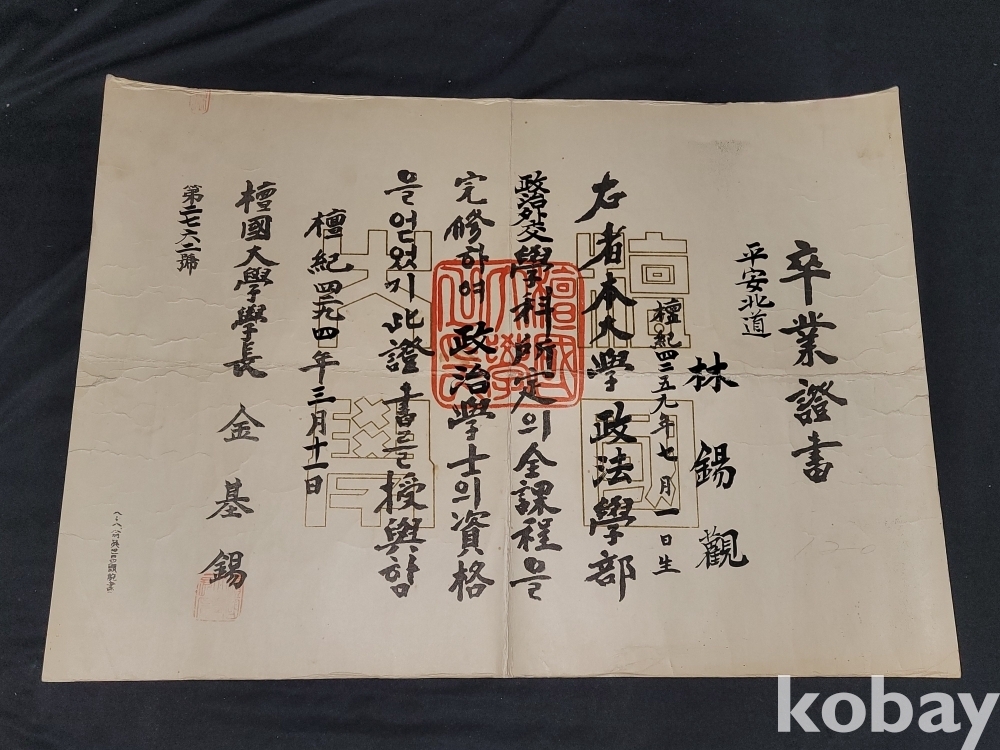 卒業證書
平安北道
林錫觀
檀紀四二五九年七月一日生
右者本大學政法學部
政治外交學科所定의全課程을
完修하여政治學士의資格
을얻었기此證書를授與함
檀紀四二九四年三月十一日
檀國大學學長 金基錫
第二七六二號
檀國
大學
kobay